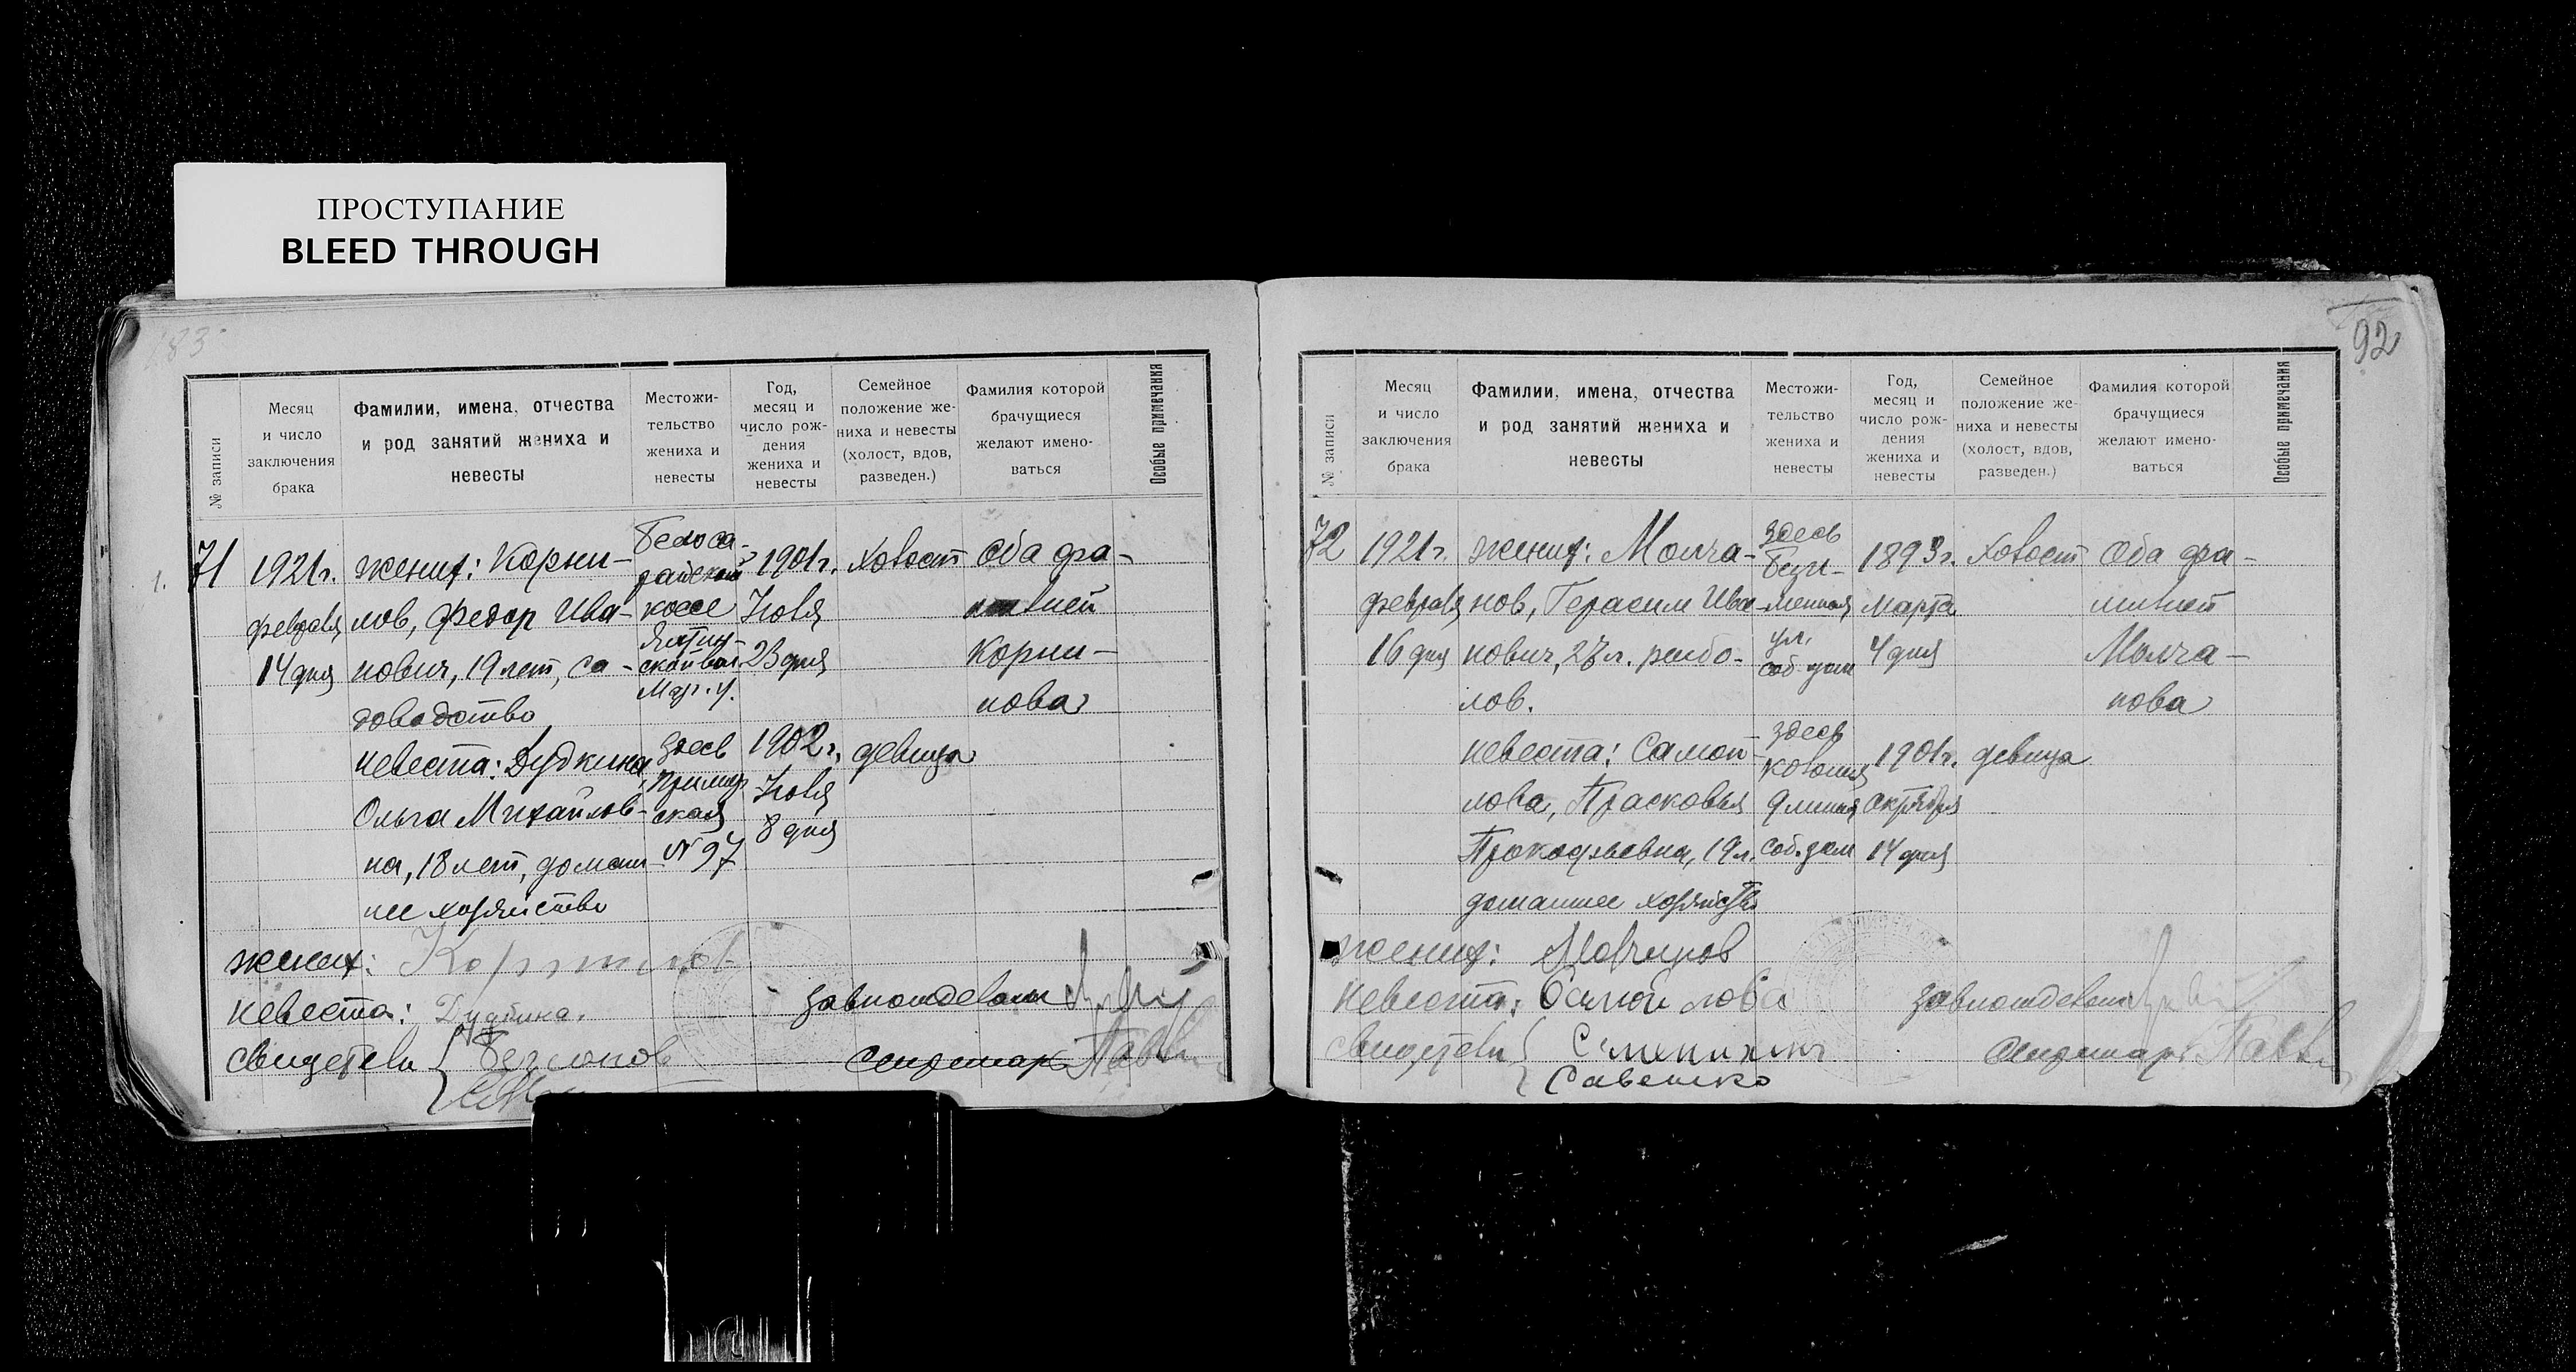 ПРОСТУПАНИЕ
BLEED THROUGH
183
№ записи
Месяц
и число
заключения
брака
Фамилии, имена, отчества
и род занятий жениха и
невесты
Местожи-
тельство
жениха и
невесты
Год,
месяц и
число рож-
дения
жениха и
невесты
Семейное
положение же-
ниха и невесты
(холост, вдов,
разведен.)
Фамилия которой
брачущиеся
желают имено-
ваться
Особые примечания
1.
71
1921г.
февраля
14 дня
жених: Корни-
лов, Федор Ива-
нович, 19 лет, са-
доводство
Белоса-
райской
косе
Ялтин-
ской вол.
Мар. у.
1901г.
23 дня
холост
Оба фа-
милией
Корни-
лова
невеста: Дудкина,
Ольга Михайлов-
на, 18 лет, домаш-
нее хозяйство
здесь
№ 97
1902г.
8 дня
девица
жених: Корнилов
невеста: Дудкина.
свидетели
завподотделом
секретарь
92
№ записи
Месяц
и число
заключения
брака
Фамилии, имена, отчества
и род занятий жениха и
невесты
Местожи-
тельство
жениха и
невесты
Год,
месяц и
число рож-
дения
жениха и
невесты
Семейное
положение же-
ниха и невесты
(холост, вдов,
разведен.)
Фамилия которой
брачущиеся
желают имено-
ваться
Особые примечания
72
1921г.
февраля
16 дня
жених: Молча-
нов, Герасим Ива-
нович, 27 л. рыбо-
лов.
здесь
Безы-
менная
ул.
соб. дом
1893г.
марта
4 дня
холост
Оба фа-
милией
Молча-
нова
невеста: Самой-
лова, Прасковья
Прокофьевна, 19 л.
домашнее хозяйство
здесь
соб. дом
1901г.
октября
14 дня
девица
жених: Молчанов
невеста: Самойлова
свидетели
Савенко
завподотделом
секретарь